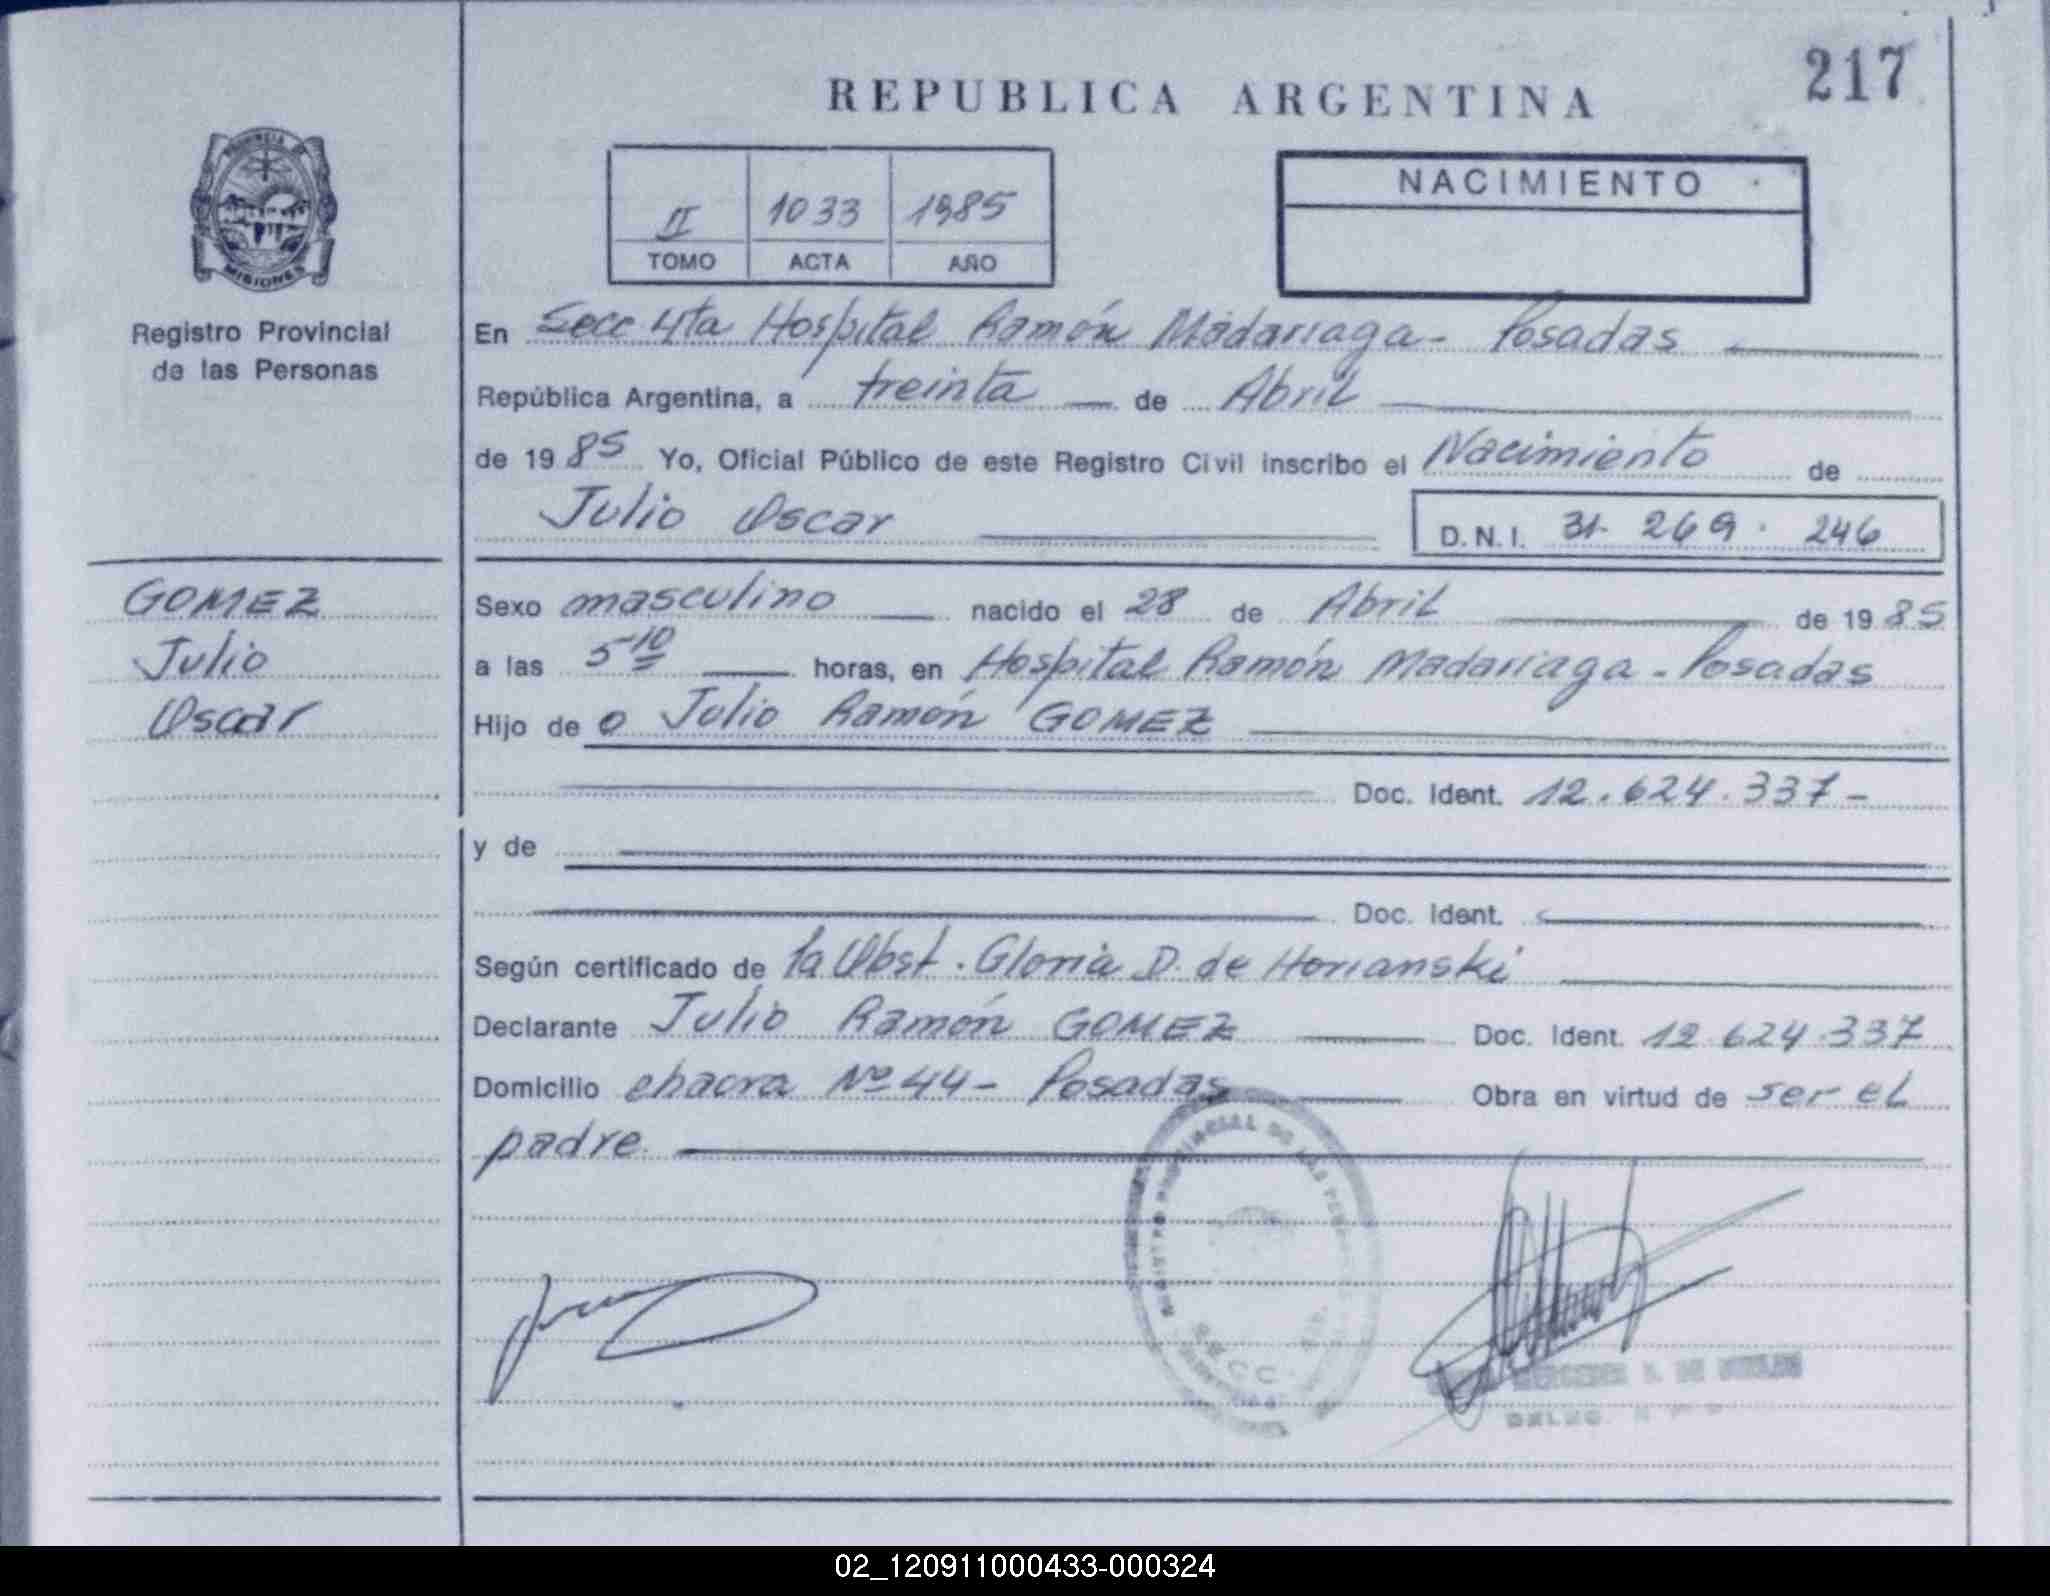 217
REPUBLICA ARGENTINA
PROVINCIA DE
MISIONES
Registro Provincial
de las Personas
II 1033 1985
TOMO ACTA AÑO
NACIMIENTO
En Secc 4ta Hospital Ramón Madariaga - Posadas
República Argentina, a treinta de Abril
de 1985 Yo, Oficial Público de este Registro Civil inscribo el Nacimiento de
Julio Oscar D.N.I. 31. 269. 246
GOMEZ
Julio
Oscar
Sexo masculino nacido el 28 de Abril de 1985
a las 5-10 horas, en Hospital Ramón Madariaga - Posadas
Hijo de o Julio Ramón GOMEZ
Doc. Ident. 12.624.337-
y de
Doc. Ident.
Según certificado de la Obst. Gloria D. de Horianski
Declarante Julio Ramón GOMEZ Doc. Ident. 12.624.337
Domicilio chacra Nº 44 - Posadas Obra en virtud de ser el
padre.
REGISTRO PROVINCIAL DE LAS
SECC.
02_120911000433-000324